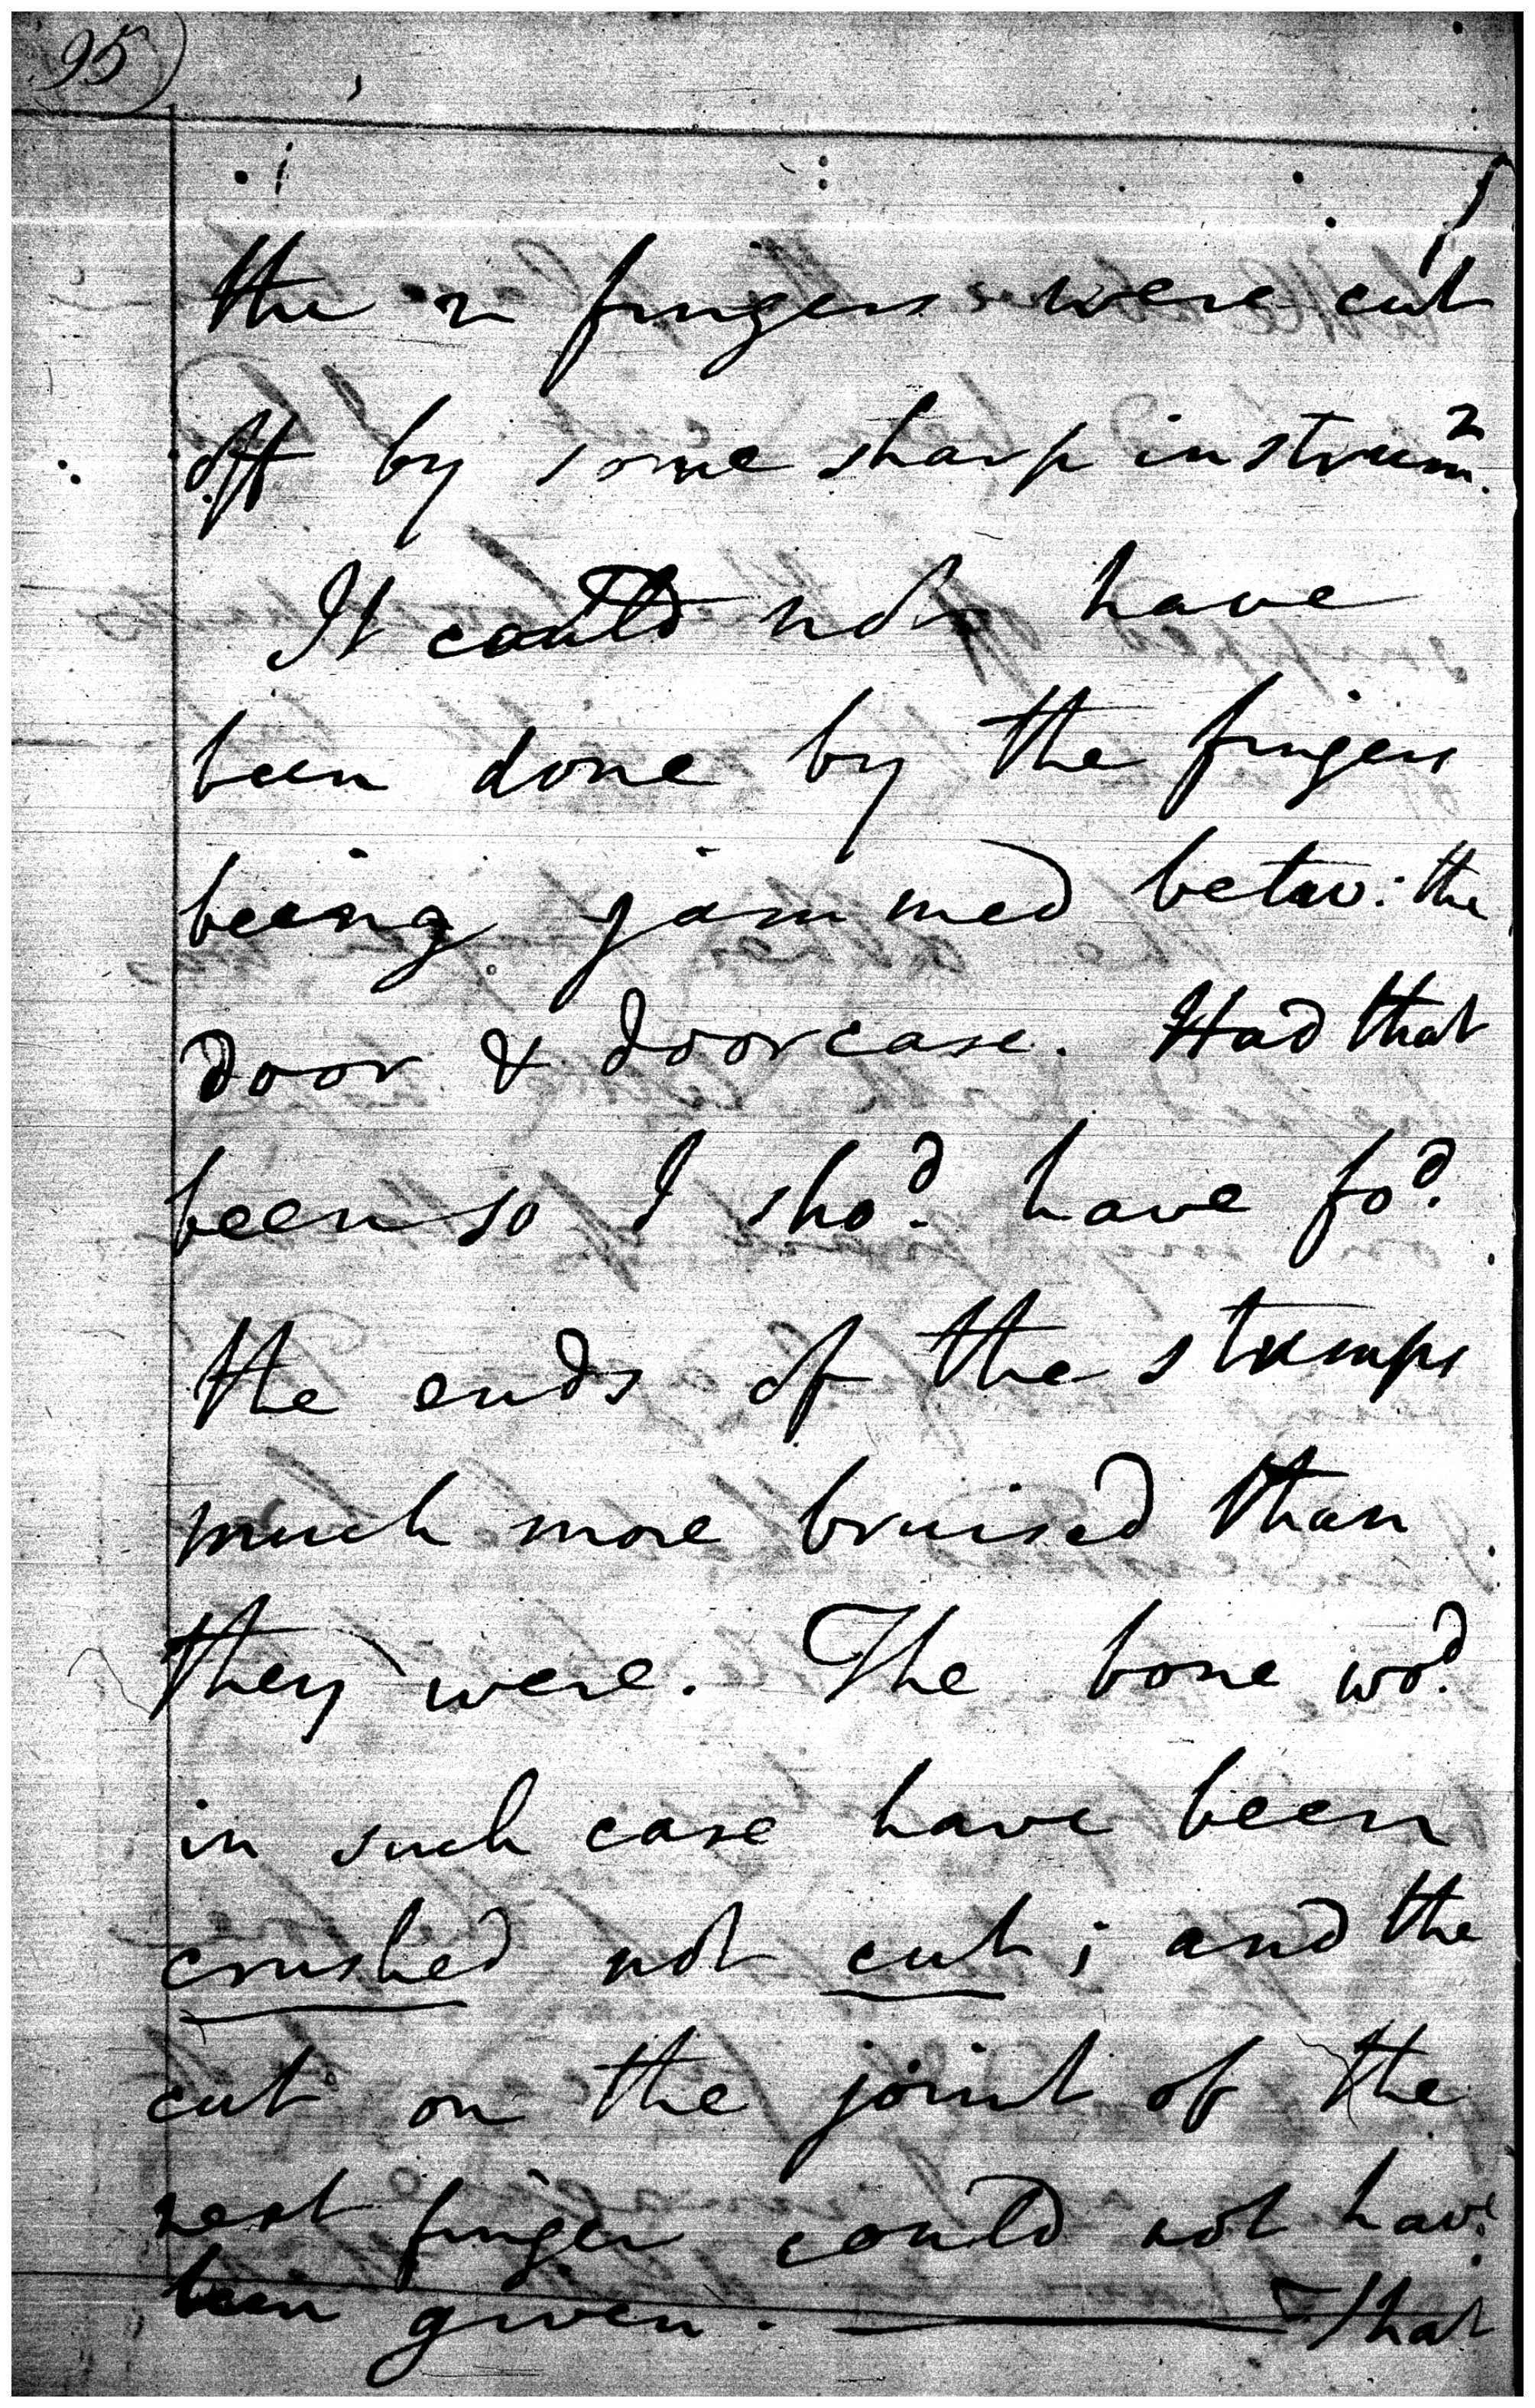 95)
the 2 fingers were cut
off by some sharp instrum.
It could not have
been done by the fingers
being jammed betw: the
door & doorcase. Had that
been so I shod. have fod.
the ends of the stumps
much more bruised than
they were. The bone wod.
in such case have been
crushed not cut; and the
cut on the joint of the
next finger could not have
been given. — That